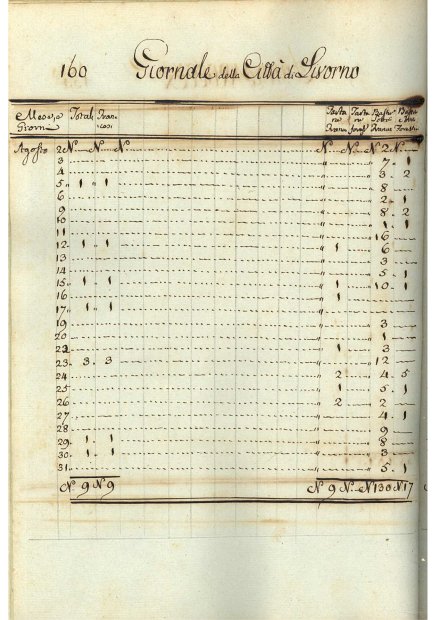 160 Giornale della Città di Livorno
Mese, e Giorni Totale Francesi
Agosto 2 N.. N.. N N N N 2 N
3 7 1
4 3 2
5 1 1 8
6 2 1
9 8 2
10 1 1
11 16
12 1 1 1 6
13 3
14 5 1
15 1 1 1 10 1
16 1
17 1 1
19 3
20 1
22 1 3
23 3 3 12
24 2 4 5
25 1 5 1
26 2 2
27 4 1
28 9
29 1 1 8
30 1 1 3
31 5 1
N 9 N 9 N 9 N N 130 N 17